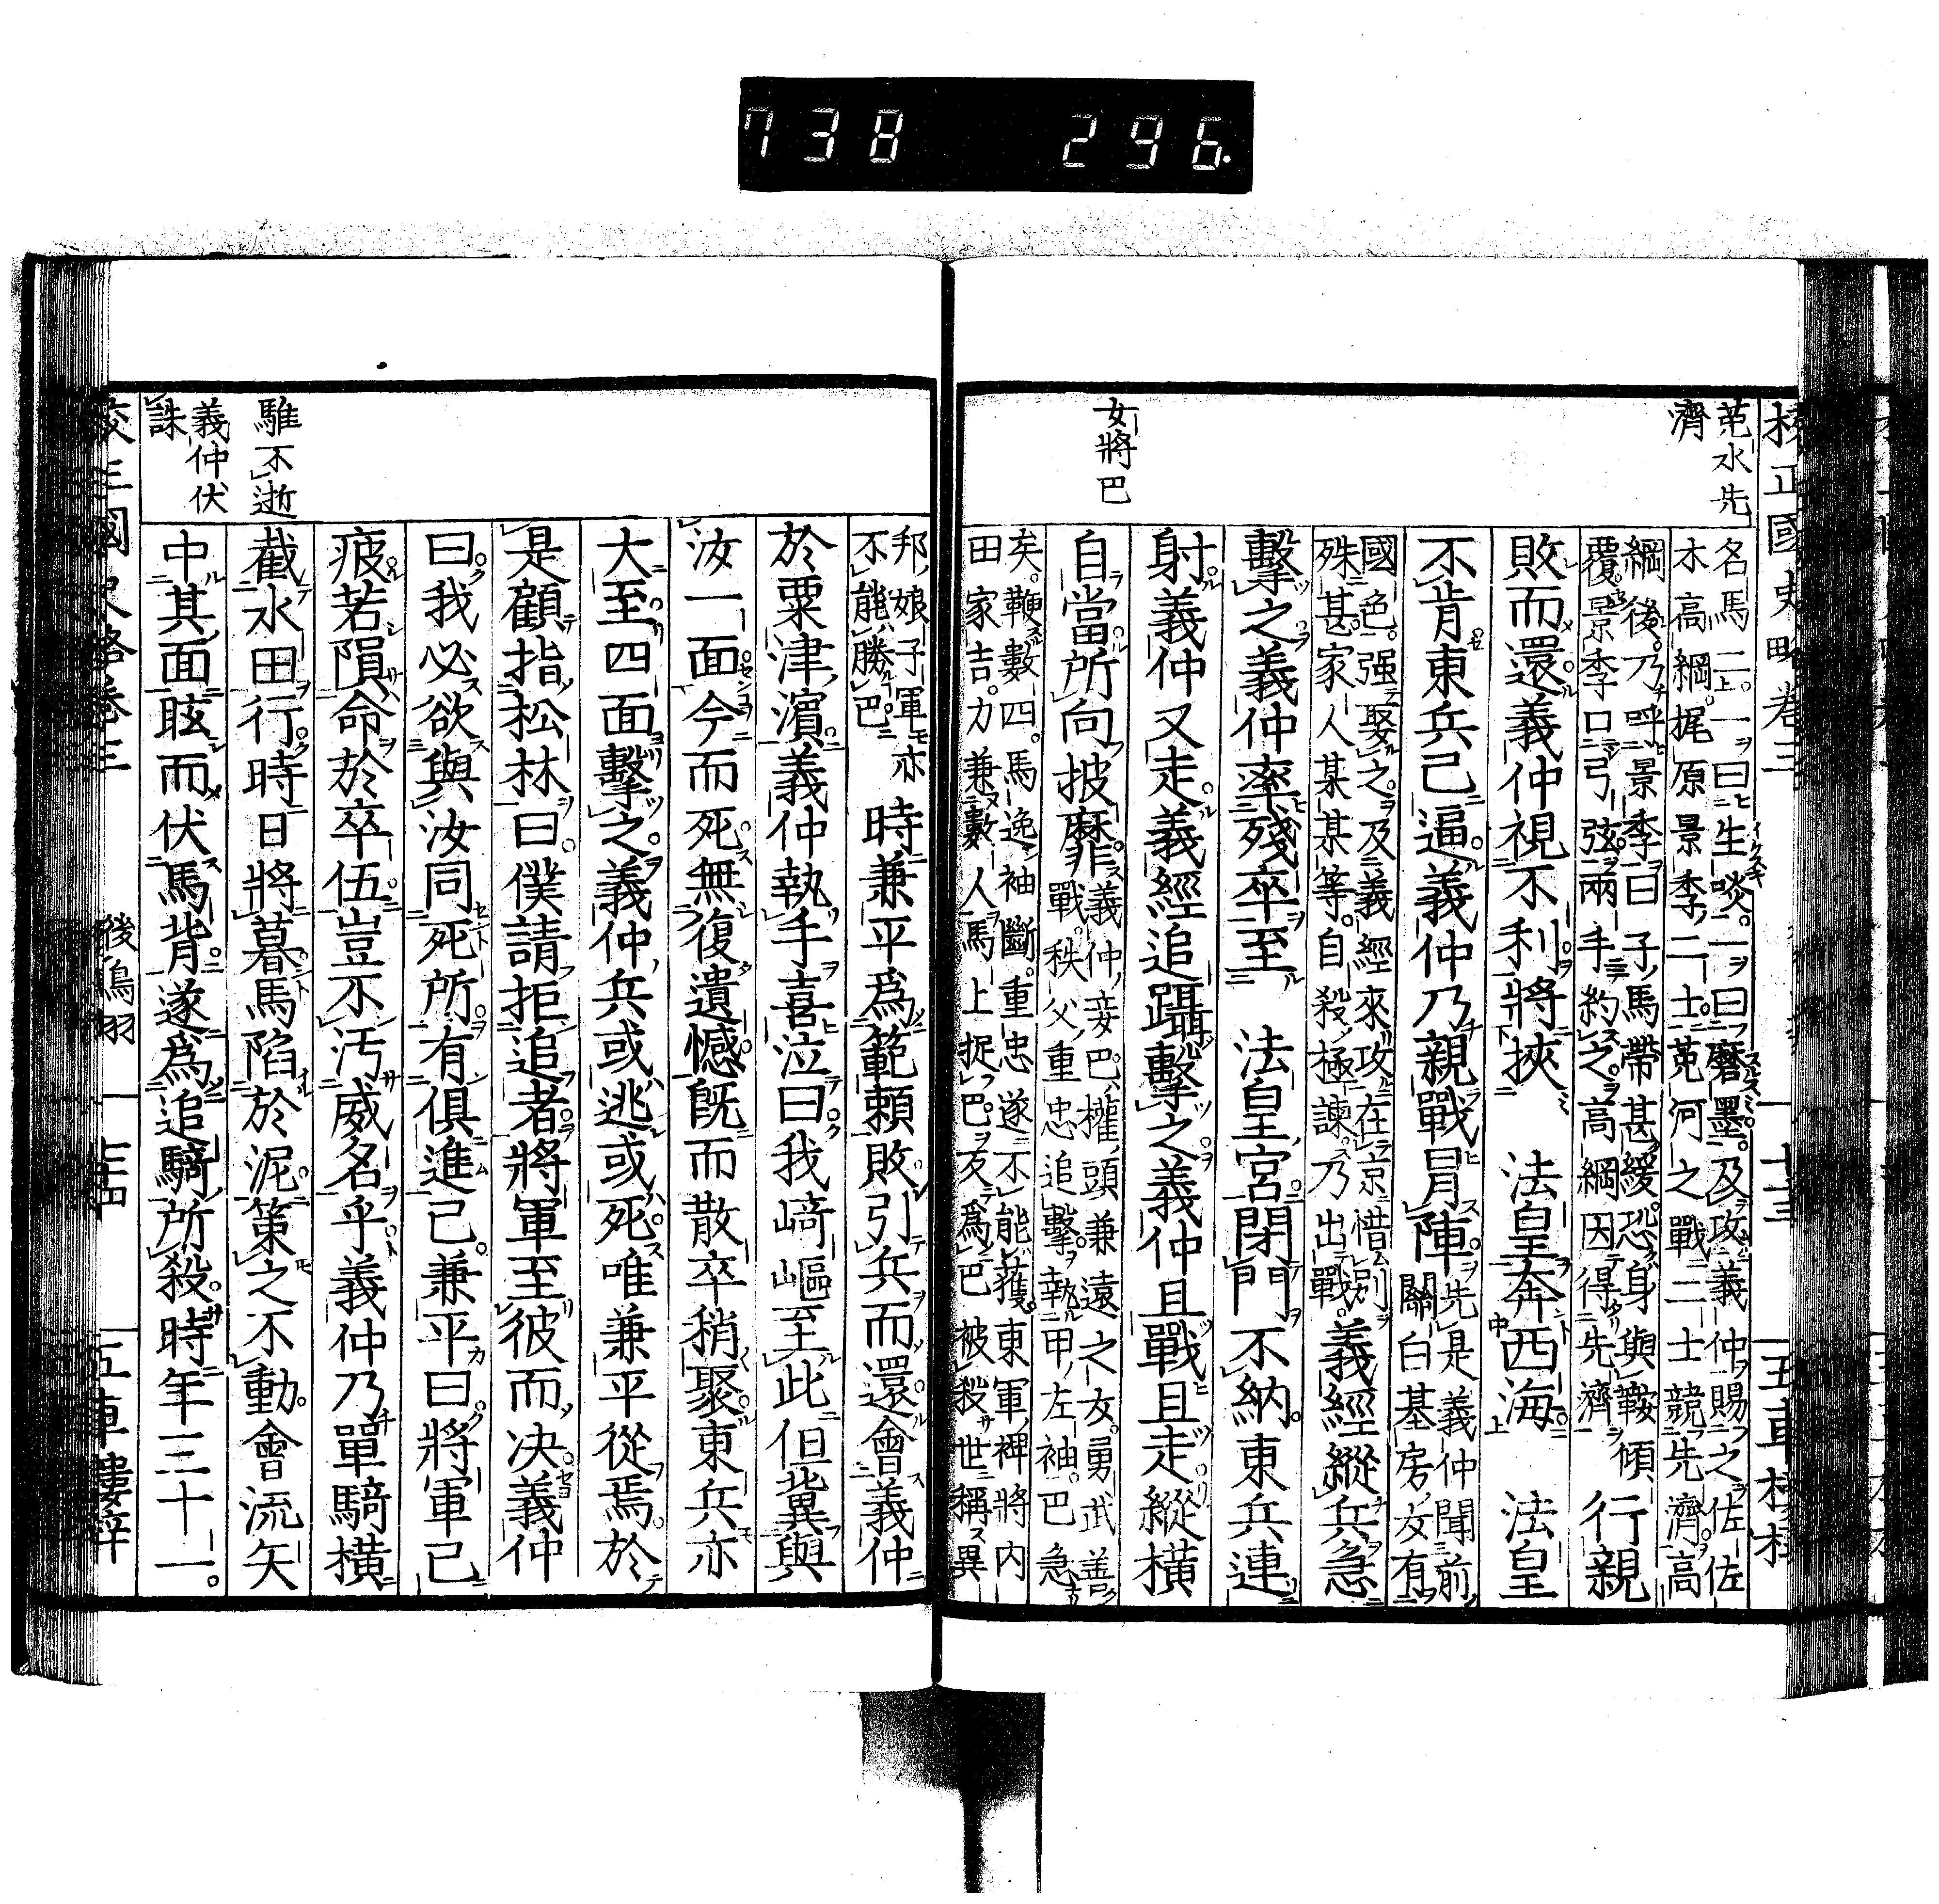 738 296.
校正國史略卷三 七十三 五車樓梓
菟水先
濟
女將巴
名馬二。一曰生唼。一曰磨墨。及攻義仲賜之佐佐
木高綱。梶原景季。二士菟河之戰二士競先濟高
綱後。乃呼景季曰子馬帶甚緩。恐身與鞍傾
覆。景季口弓弦兩手約之。高綱因得先濟 行親
敗而還。義仲視不利。將挾 法皇奔西海。 法皇
不肯。東兵已逼。義仲乃親戰冒陣。先是義仲聞前
關白基房女有
國色。强娶之。及義經來攻。在京惜別。
殊甚。家人某某等。自殺極諫。乃出戰。義經縱兵急
擊之。義仲率殘卒至 法皇宮。閉門不納。東兵連
射。義仲又走。義經追躡擊之。義仲且戰且走。縱橫
自當所向披靡。義仲妾巴。權頭兼遠之女。勇武善
戰。秩父重忠追擊。執甲左袖。巴急
矣。鞭數四。馬逸袖斷。重忠遂不能獲。東軍裨將内
田家吉。力兼數人馬上捉巴。反爲巴被殺世稱異
邦娘子軍亦
不能勝巴。 時兼平爲範賴敗。引兵而還。會義仲
於粟津濱。義仲執手喜泣曰。我崎嶇至此。但冀與
汝一面。今而死。無復遺憾。既而散卒稍聚。東兵亦
大至。四面擊之。義仲兵或逃或死。唯兼平從焉。於
是顧指松林曰。僕請拒追者。將軍至彼而決。義仲
曰。我必欲與汝同死所。有俱進已。兼平曰。將軍已
疲。若隕命於卒伍。豈不汚威名乎。義仲乃單騎横
截水田行。時日將暮。馬陷於泥。策之不動。會流矢
中其面。眩而伏馬背。遂爲追騎所殺。時年三十一。
騅不逝
義仲伏
誅
校正國史略卷三 後鳥羽 七十四 五車樓梓